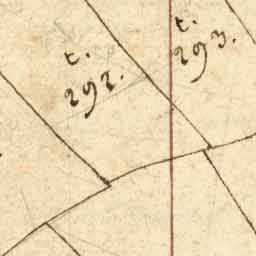 t.
292.
t.
293.